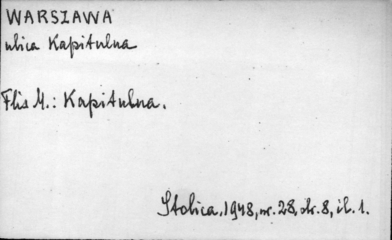 WARSZAWA
ulica Kapitulna
Flis M.: Kapitulna.
Stolica, 1948, nr. 28, str. 8, il. 1.